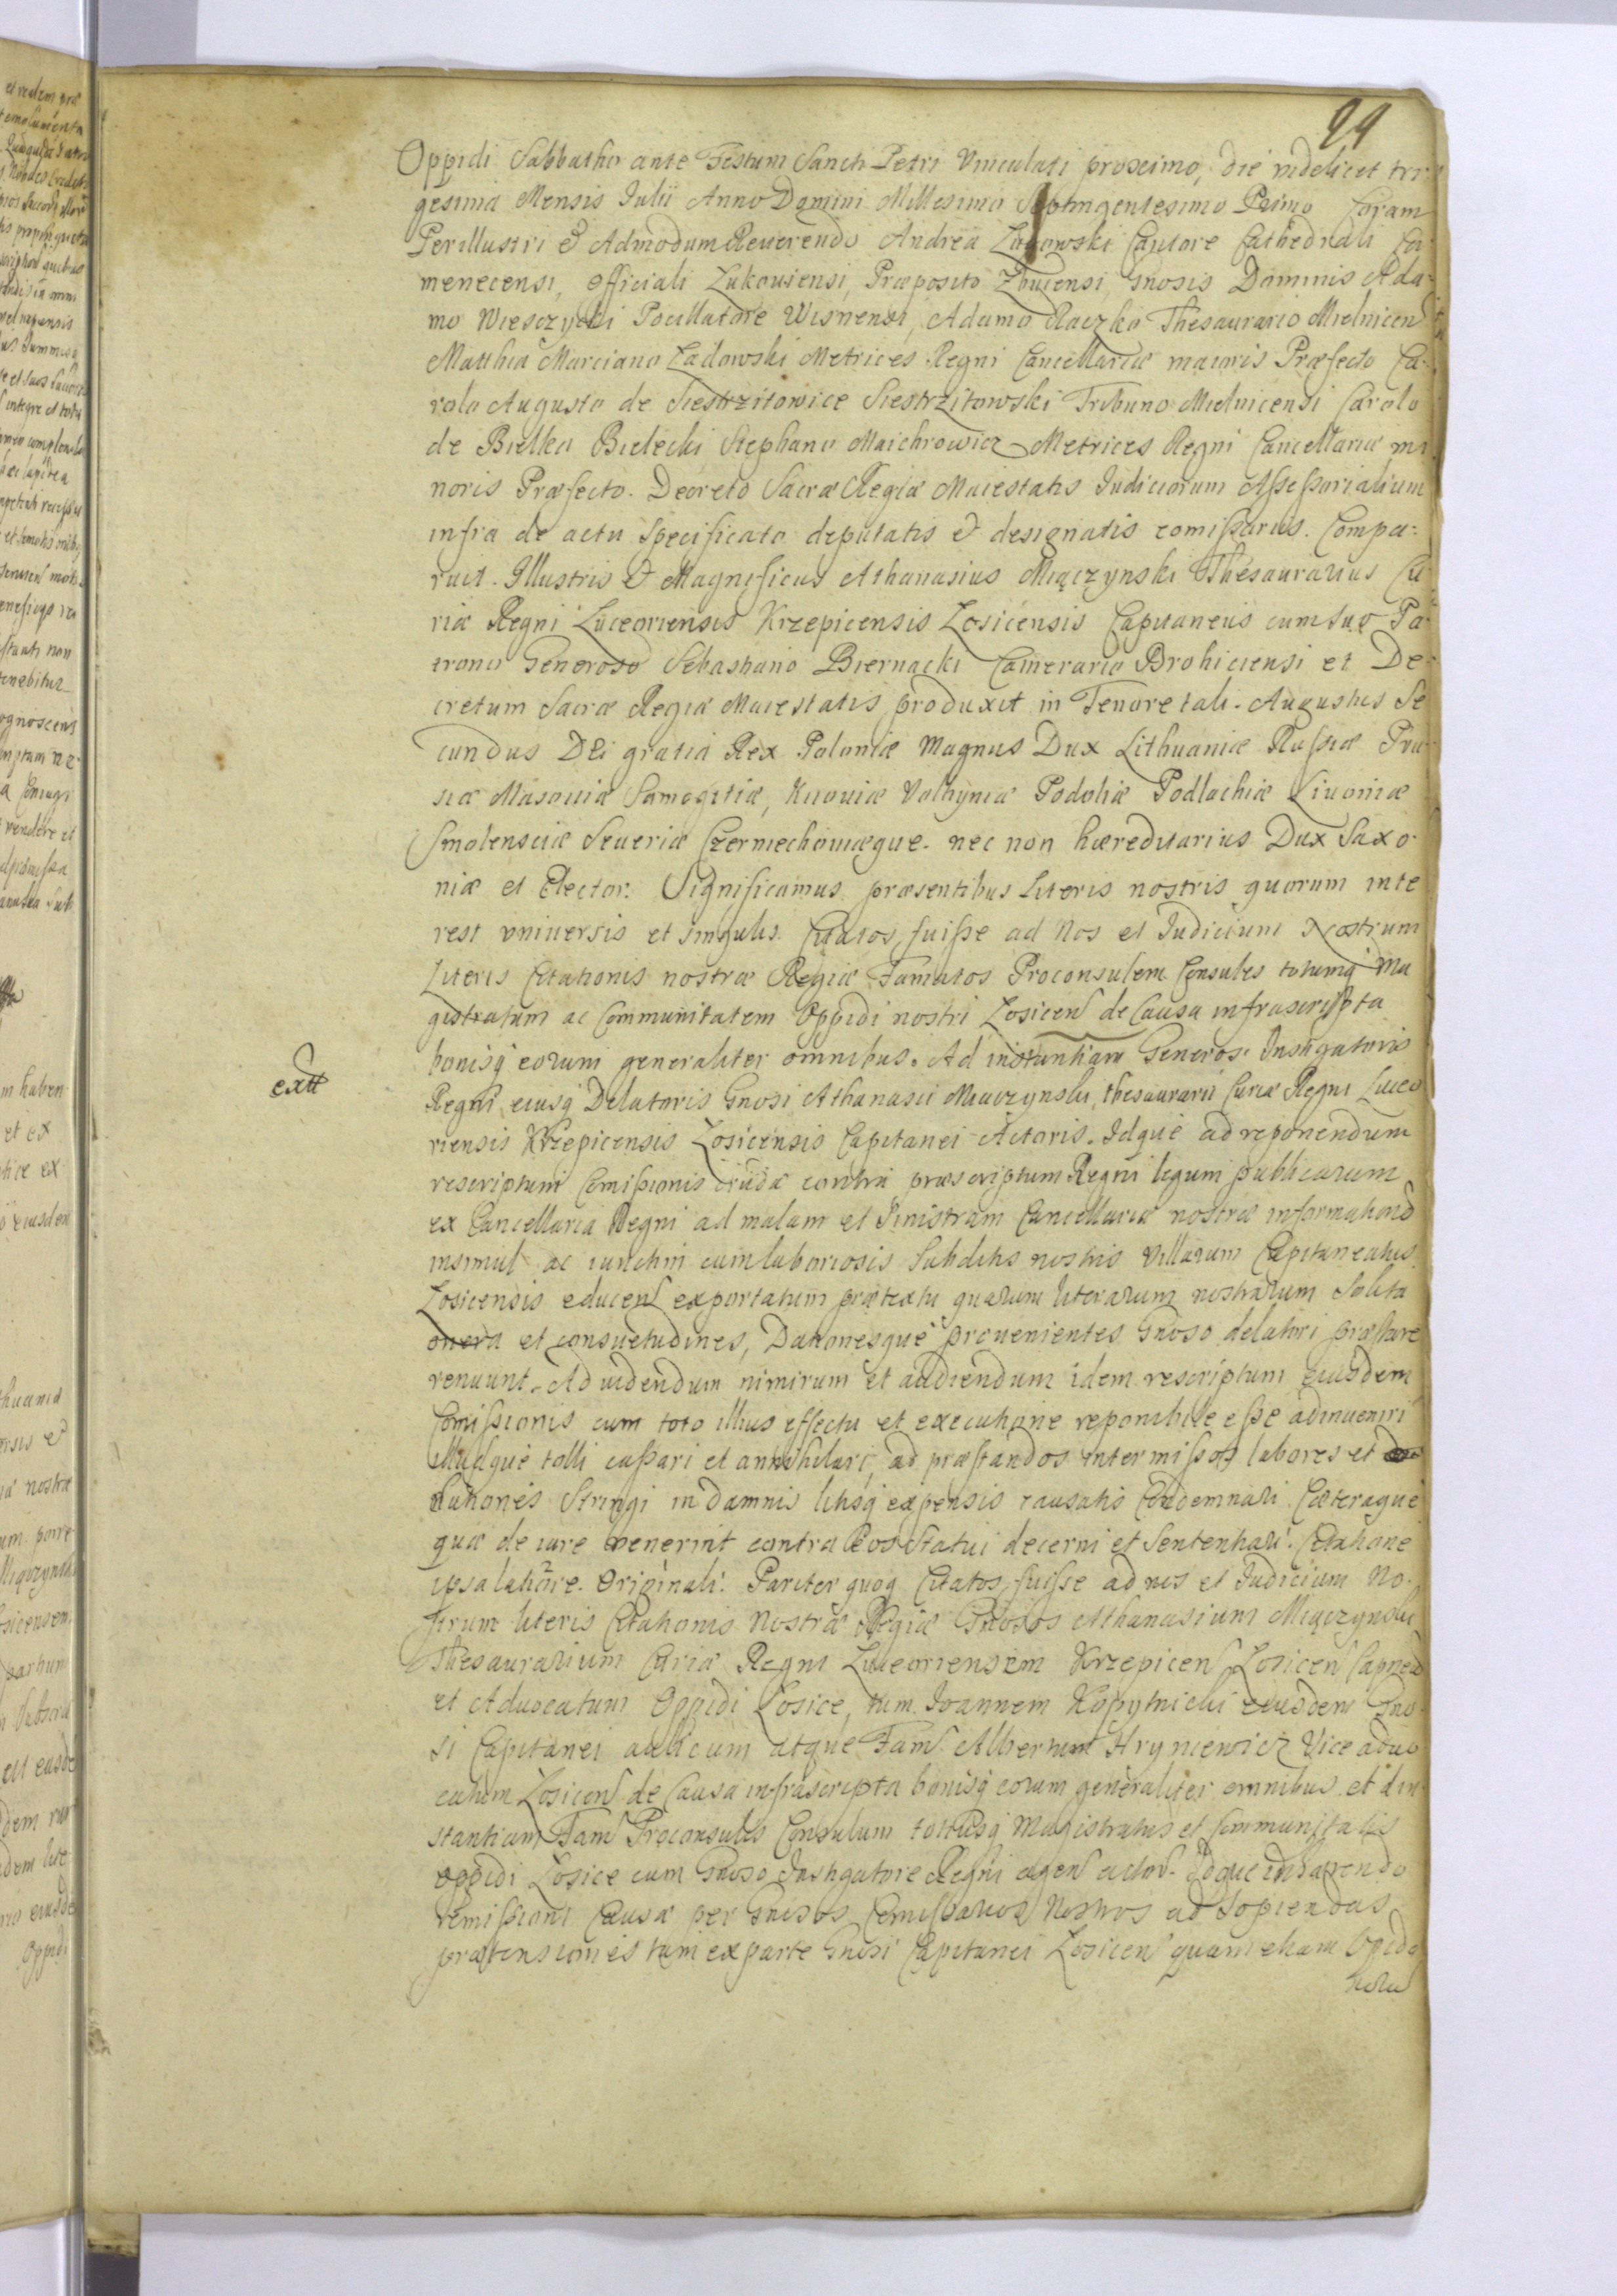 29
Oppidi Sabbatho ante Festum Sancti Petri Vinculati proximo, die videlicet tri
gesima Mensis Julii Anno Domini Millesimo Septingentesimo Primo Coram
Perillustri & Admodum Reuerendo Andrea Cantore Cathedrali Ca
menecensi, Officiali Lukouiensi, Præposito Gnosis Dominis Ada-
mo Wieszczycki Pocillatore Wisnensi, Adamo Raczko Thesaurario Mielnicen
Matthia Marciano Ladowski Metrices Regni Cancellariæ maioris Præfecto Ca-
rolo Augusto de Siestrzitowice Siestrzitowski Tribuno Mielnicensi Carolo
de Bielka Bielecki Stephano Maichrowicz Metrices Regni Cancellariæ mi
noris Præfecto. Decreto Sacræ Regiæ Maiestatis Iudiciorum Assessorialium
infra de actu specificato deputatis & designatis comissariis. Compa:
ruit. Illustris & Magnificus Athanasius Miączynski Thesaurarius Cu
riæ Regni Luceoriensis Krzepicensis Losicensis Capitaneus cum suo Pa-
trono Generoso Sebastiano Biernacki Camerario Brohiciensi et De-
cretum Sacræ Regiæ Maiestatis produxit in Tenore tali. Augustus Se
cundus Dei gratiâ Rex Poloniæ Magnus Dux Lithuaniæ Russiæ Pru-
siæ Masouiæ Samogitiæ, Kiiouiæ Volhyniæ Podoliæ Podlachiæ Liuoniæ
Smolensciæ Seueriæ Czerniechouiæque. nec non hæreditarius Dux Saxo-
niæ et Elector. Significamus præsentibus Literis nostris quorum inte
rest vniuersis et singulis. Citatos fuisse ad Nos et Iudicium Nostrum
Literis Citationis nostræ Regiæ Famatos Proconsulem Consules totumq Ma
gistratum ac Communitatem Oppidi nostri Losicen de Causa infrascripta
bonisq eorum generaliter omnibus. Ad instantiam Generos. Instigatoris
Regni, eiusq Delatoris Gnosi Athanasii Miaczynski, thesaurarii Curiæ Regni Luceo
riensis Krzepicensis Losicensis Capitanei Actoris. Idque ad reponendum
rescriptum Comissionis contra præscriptum Regni legum publicarum
ex Cancellaria Regni ad malam et sinistram Cancellariæ nostræ informationem
insimul ac iunctim cum laboriosis subditis nostris Villarum Capitaneatus
Losicensis educen exportatum prætextu quarum literarum nostrarum solita
onera et consuetudines, Dationesque prouenientes Gnoso delatori præstare
renuunt. Ad videndum nimirum et audiendum idem rescriptum eiusdem
Comissionis cum toto illius effectu et executione reponibile esse adinueniri
illudque tolli cassari et annihilari, ad præstandos intermissos labores et
dationes Stringi in damnis litisq expensis causatis Condemnari. Cæteraque
quæ de iure venerint contra Eos statui decerni et sententiari. Citatione
ipsa latiore. Originali. Pariter quoq Citatos fuisse ad nos et Iudicium No-
strum literis Citationis Nostræ Regiæ Gnosos Athanasium Miączynski
Thesaurarium Curiæ Regni Luceoriensem Krzepicen Losicen Capneū
et Aduocatum Oppidi Losice, tum Ioannem Kopytnicki eiusdem Gno
si Capitanei aulicum atque Fam Albertum Hryncewicz Vice aduo
catum Losicen de Causa infrascripta bonisq eorum generaliter omnibus et ad in
stantiam Fam Proconsulis Consulum totiusq Magistratus et Communitatis
oppidi Losice cum Gnoso Instigatore Regni agen actor. Idque inhærendo
remissioni Causæ per Gnosos Comissarios Nostros ad Sopiendas
prætensiones tam ex parte Gnosi Capitanei Losicen quam etiam Opida
norū
extt